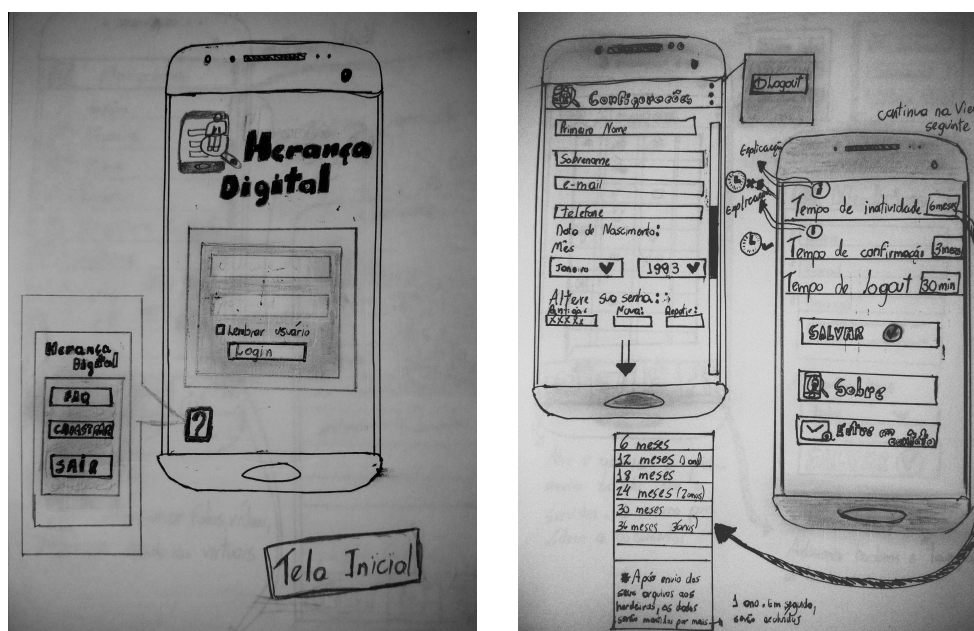 Herança
Digital
Lembrar usuário
Login
Herança
Digital
FAQ
CADASTRAR
SAIR
?
Tela Inicial
Configurações
Logout
Primeiro Nome
Sobrenome
e-mail
Telefone
Data de Nascimento:
Mês
Janeiro
1993
Altere sua senha:
Antiga:
Nova:
Repetir:
XXXXX
continua na View
seguinte
Explicação
Explicação
Tempo de inatividade
6 meses
Tempo de confirmação
3 meses
Tempo de logout
30 min
SALVAR
Sobre
Entre em contato
6 meses
12 meses (1 ano)
18 meses
24 meses (2 anos)
30 meses
36 meses 3 anos)
* Após envio dos
seus arquivos aos
herdeiros, os dados
serão mantidos por mais
1 ano. Em seguida,
serão excluídos